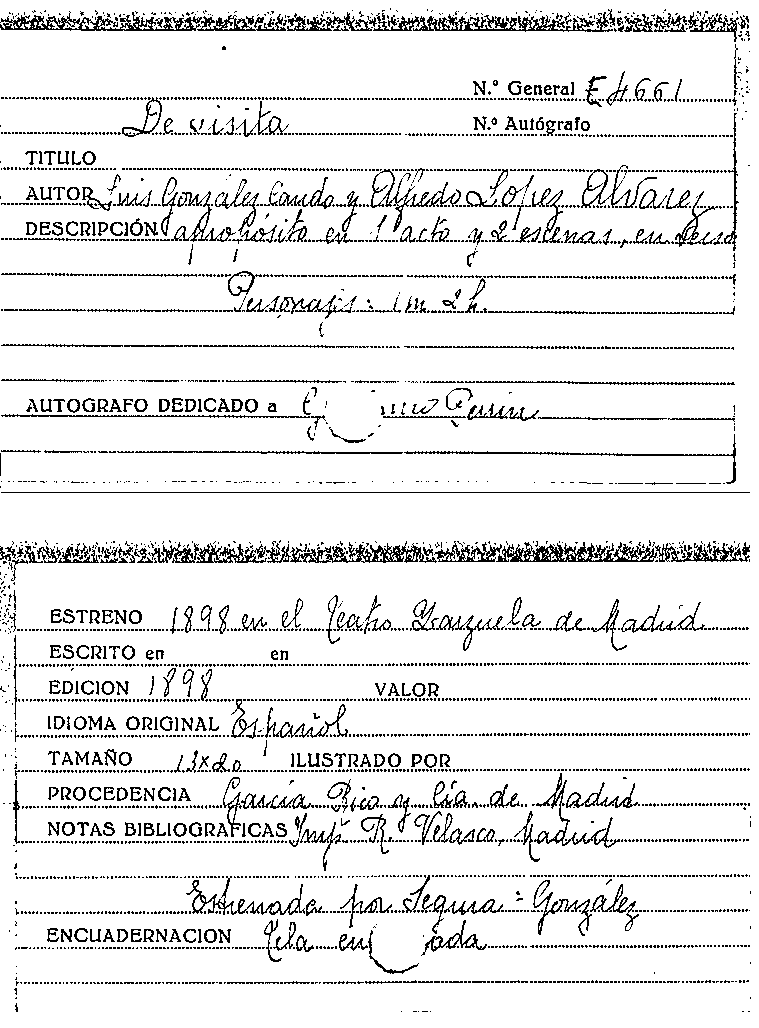 N.º General E 4661
De visita N.º Autógrafo
TITULO
AUTOR Luis González Cando y Alfredo López Alvarez
DESCRIPCIÓN apropósito en 1 acto y 2 escenas, en
Personajes: 1 m 2 h.
AUTOGRAFO DEDICADO a Perrin
ESTRENO 1898 en el Teatro Zarzuela de Madrid
ESCRITO en en
EDICION 1898 VALOR
IDIOMA ORIGINAL Español
TAMAÑO 13x20 ILUSTRADO POR
PROCEDENCIA García Rico y Cía. de Madrid
NOTAS BIBLIOGRAFICAS Impª R. Velasco, Madrid
Estrenada por Segura = González
ENCUADERNACION Tela